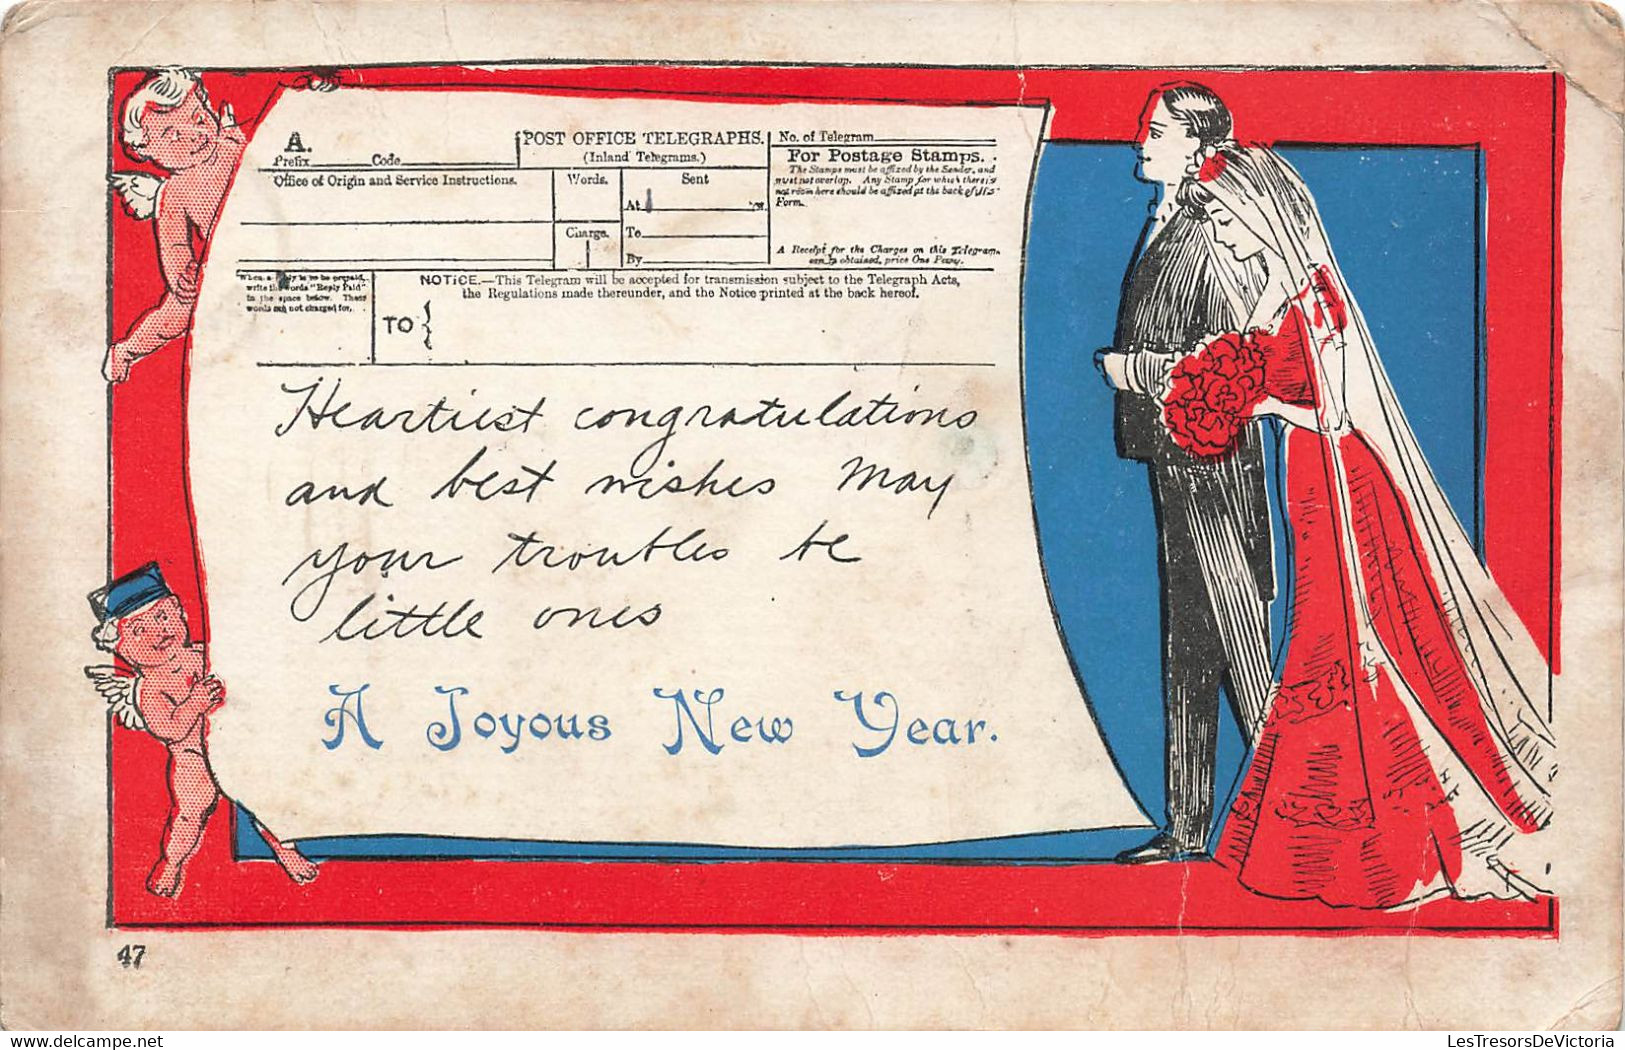 A.
Prefix Code
POST OFFICE TELEGRAPHS.
(Inland Telegrams.)
No. of Telegram
For Postage Stamps.
The Stamps must be affixed by the Sender, and
must not overlap. Any Stamp for which there is
not room here should be affixed at the back of this
Form.
A Receipt for the Charges on this Telegram
can be obtained, price One Penny.
Office of Origin and Service Instructions.
Words.
Charge.
Sent
At
To
By
When a Reply is to be prepaid,
write the words "Reply Paid"
in the space below. These
words are not charged for.
NOTiCE.—This Telegram will be accepted for transmission subject to the Telegraph Acts,
the Regulations made thereunder, and the Notice printed at the back hereof.
TO
Heartiest congratulations
and best wishes May
your troubles be
little ones
A Joyous New Year.
47
delcampe.net
LesTresorsDeVictoria